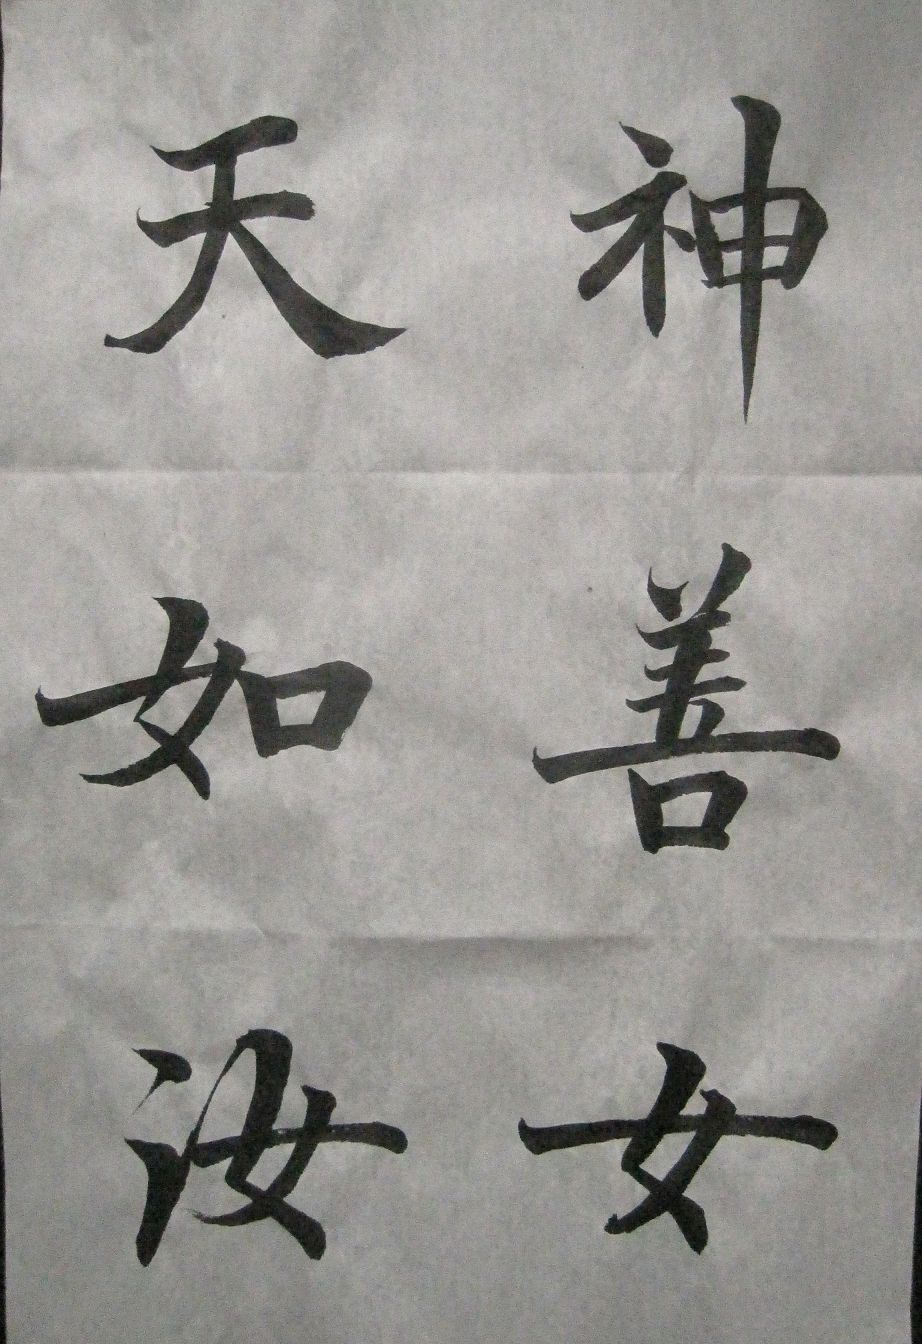 神善女
天如汝